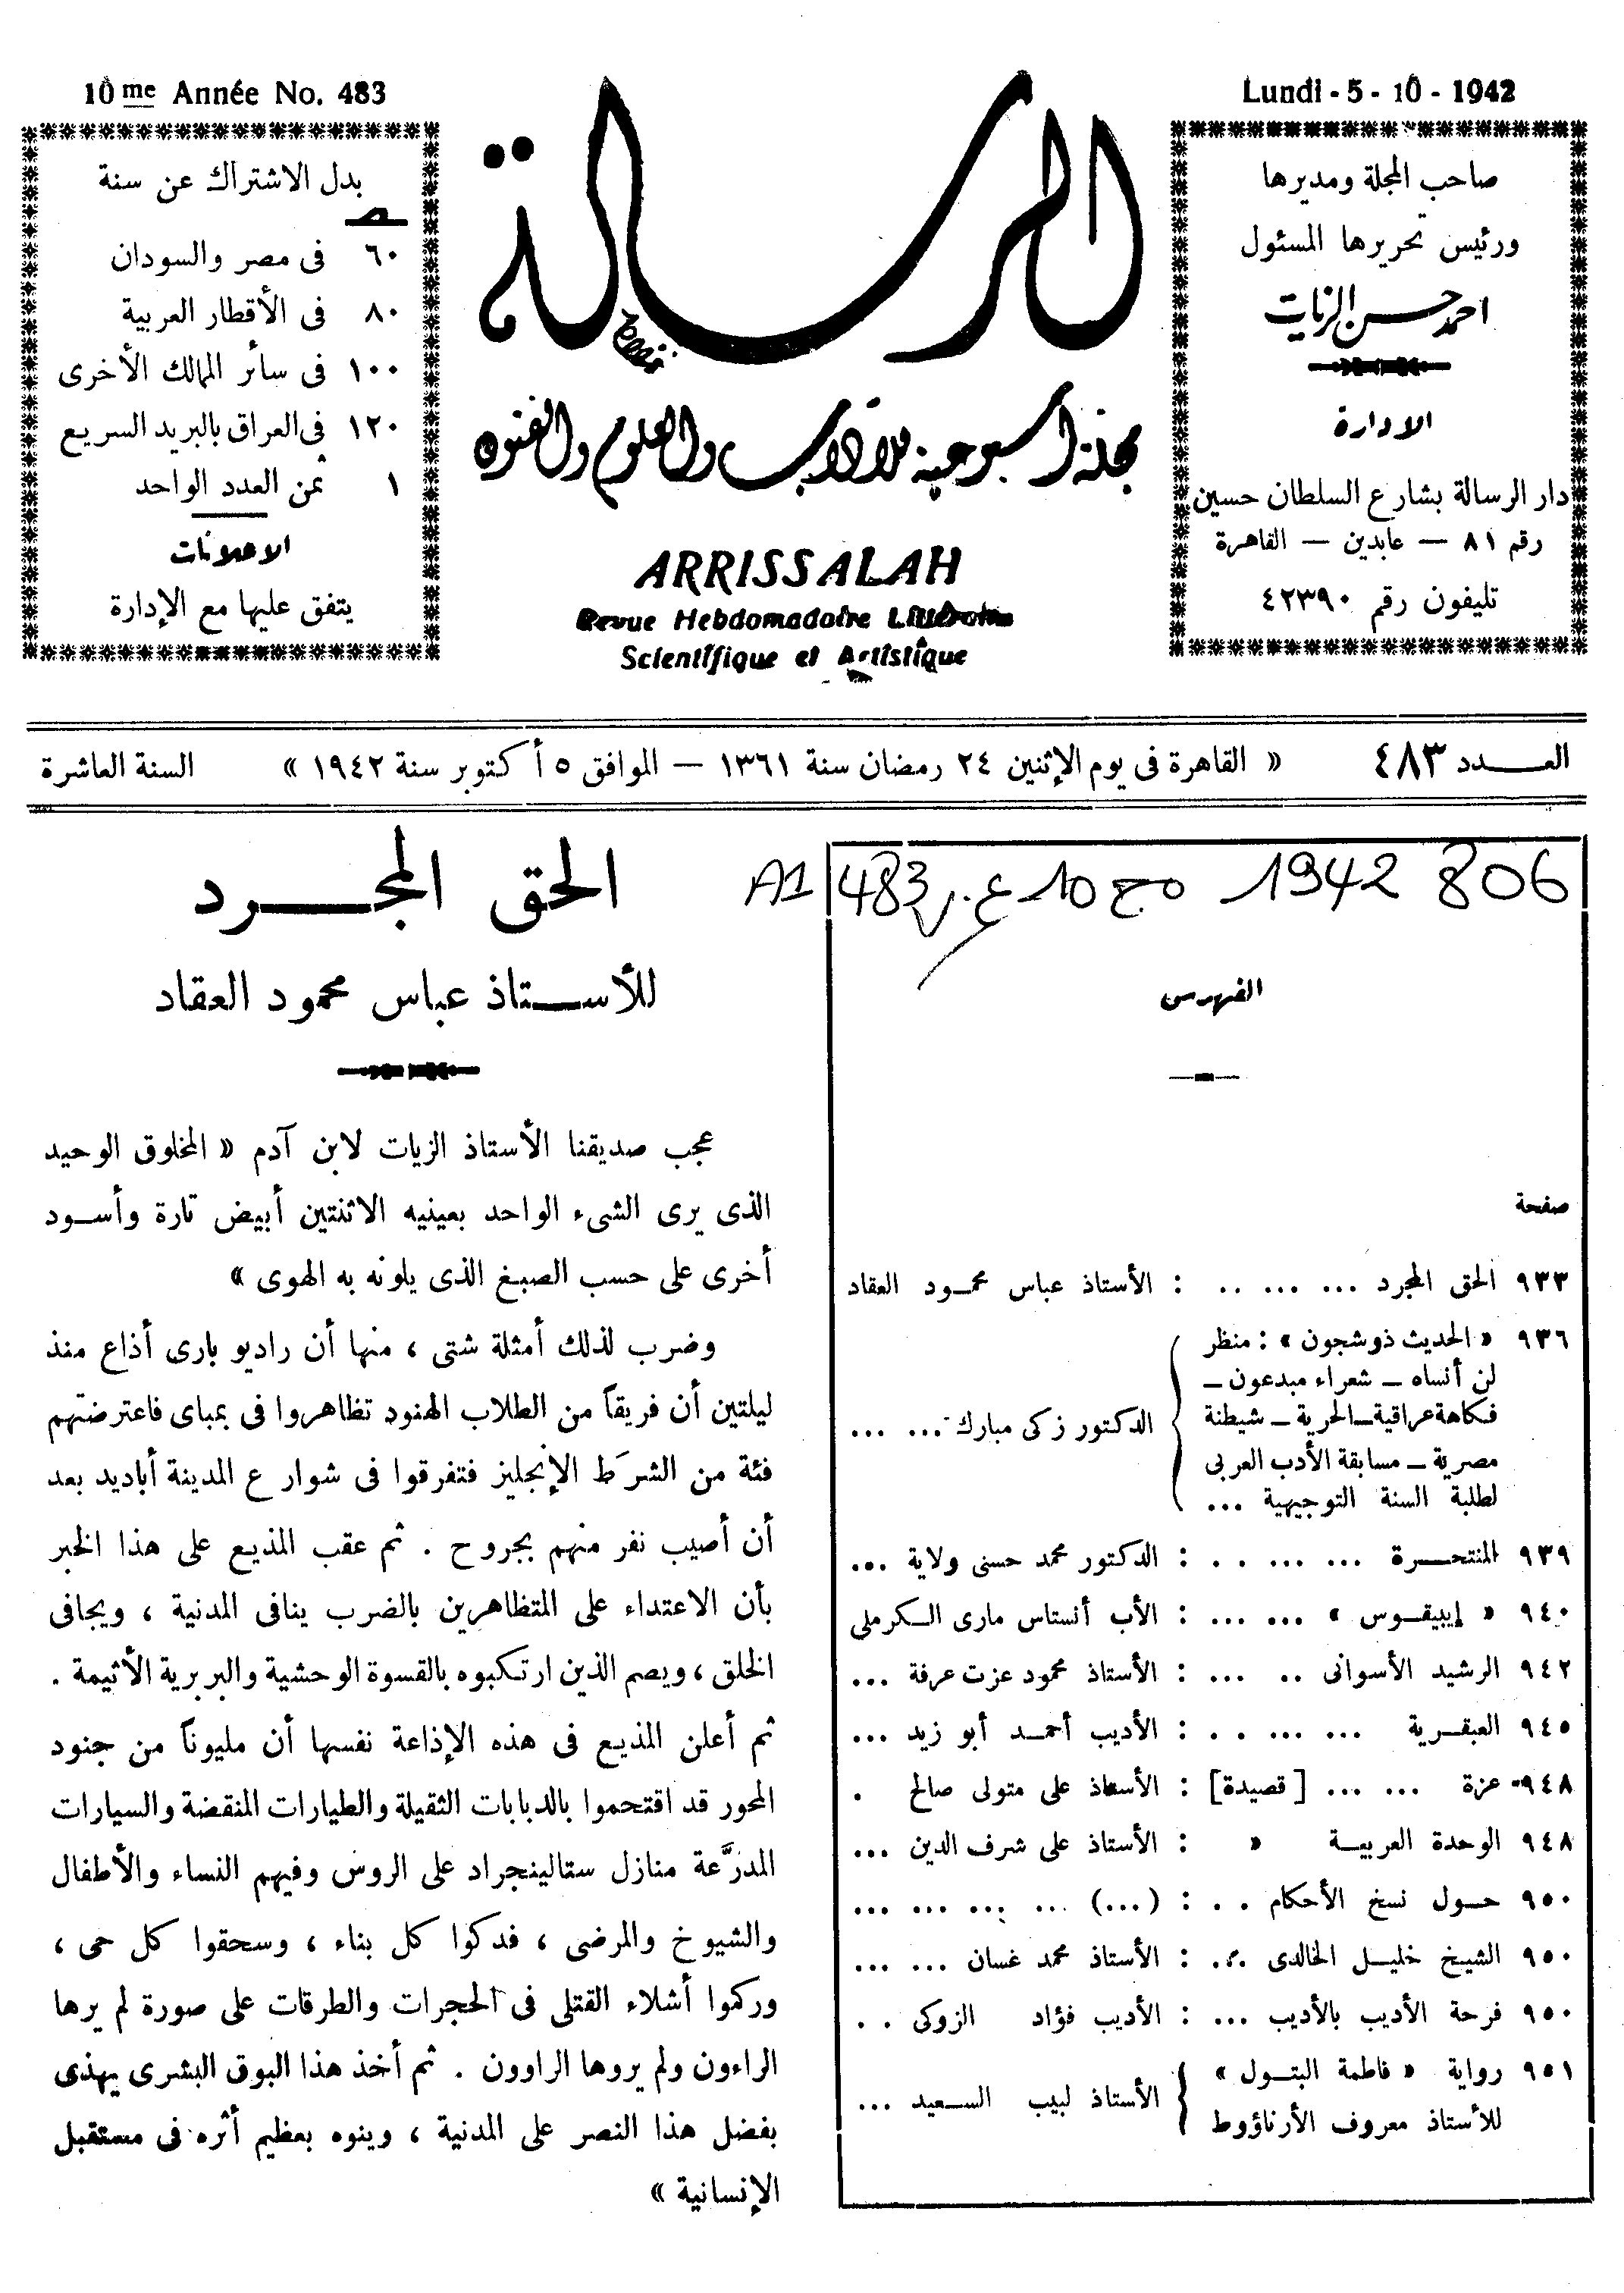 10me Année No. 483
Lundi - 5 - 10 - 1942
صاحب المجلة ومديرها
ورئيس تحريرها المسئول
احمد حسن الزيات
الادارة
دار الرسالة بشارع السلطان حسين
رقم ٨١ — عابدين — القاهرة
تليفون رقم ٤٢٣٩٠
الرسالة
مجلة أسبوعية للآداب والعلوم والفنون
ARRISSALAH
Revue Hebdomadaire Littéraire
Scientifique et Artistique
بدل الاشتراك عن سنة
٦٠ فى مصر والسودان
٨٠ فى الأقطار العربية
١٠٠ فى سائر الممالك الأخرى
١٢٠ فى العراق بالبريد السريع
١ ثمن العدد الواحد
الاعلانات
يتفق عليها مع الإدارة
العـــدد ٤٨٣ « القاهرة فى يوم الإثنين ٢٤ رمضان سنة ١٣٦١ — الموافق ٥ أكتوبر سنة ١٩٤٢ » السنة العاشرة
A1 483 ع.ر 10 مج 1942 806
الفهرس
صفحة
٩٣٣ الحق المجرد ... ... .. : الأستاذ عباس محمـود العقاد
٩٣٦ « الحديث ذو شجون » : منظر
لن أنساه — شعراء مبدعون —
فكاهة عراقية — الحرية — شيطنة
مصرية — مسابقة الأدب العربى
لطلبة السنة التوجيهية ...
الدكتور زكى مبارك ... ...
٩٣٩ المنتحـــرة ... ... . . : الدكتور محمد حسنى ولاية ...
٩٤٠ « إيبيقـوس » ... ... : الأب أنستاس مارى الـكرملى
٩٤٢ الرشيد الأسوانى .. ... : الأستاذ محمود عزت عرفة ...
٩٤٥ العبقـرية ... ... . . : الأديب أحمـد أبو زيد ...
٩٤٨ عزة ... ... [قصيدة] : الأستاذ على متولى صالح .
٩٤٨ الوحدة العربيـة » : الأستاذ على شرف الدين ...
٩٥٠ حـول نسخ الأحكام . . : (...) ... ... ... ...
٩٥٠ الشيخ خليـل الخالدى ... : الأستاذ محمد غسان ... ...
٩٥٠ فرحة الأديب بالأديب ... : الأديب فؤاد الزوكى . .
٩٥١ رواية « فاطمة البتـول »
للأستاذ معروف الأرناؤوط
الأستاذ لبيب السـعيد ...
الحق المجـــرد
للأســتاذ عباس محمود العقاد
عجب صديقنا الأستاذ الزيات لابن آدم « المخلوق الوحيد
الذى يرى الشىء الواحد بعينيه الاثنتين أبيض تارة وأسـود
أخرى على حسب الصبغ الذى يلونه به الهوى »
وضرب لذلك أمثلة شتى ، منها أن راديو بارى أذاع منذ
ليلتين أن فريقاً من الطلاب الهنود تظاهروا فى بمباى فاعترضتهم
فئة من الشرَط الإنجليز فتفرقوا فى شوارع المدينة أباديد بعد
أن أصيب نفر منهم بجروح . ثم عقب المذيع على هذا الخبر
بأن الاعتداء على المتظاهرين بالضرب ينافى المدنية ، ويجافى
الخلق ، ويصم الذين ارتكبوه بالقسوة الوحشية والبربرية الأثيمة .
ثم أعلن المذيع فى هذه الإذاعة نفسها أن مليوناً من جنود
المحور قد اقتحموا بالدبابات الثقيلة والطيارات المنقضة والسيارات
المدرَّعة منازل ستالينجراد على الروس وفيهم النساء والأطفال
والشيوخ والمرضى ، فدكوا كل بناء ، وسحقوا كل حى ،
وركموا أشلاء القتلى فى الحجرات والطرقات على صورة لم يرها
الراءون ولم يروها الراوون . ثم أخذ هذا البوق البشرى يهذى
بفضل هذا النصر على المدنية ، وينوه بعظيم أثره فى مستقبل
الإنسانية »